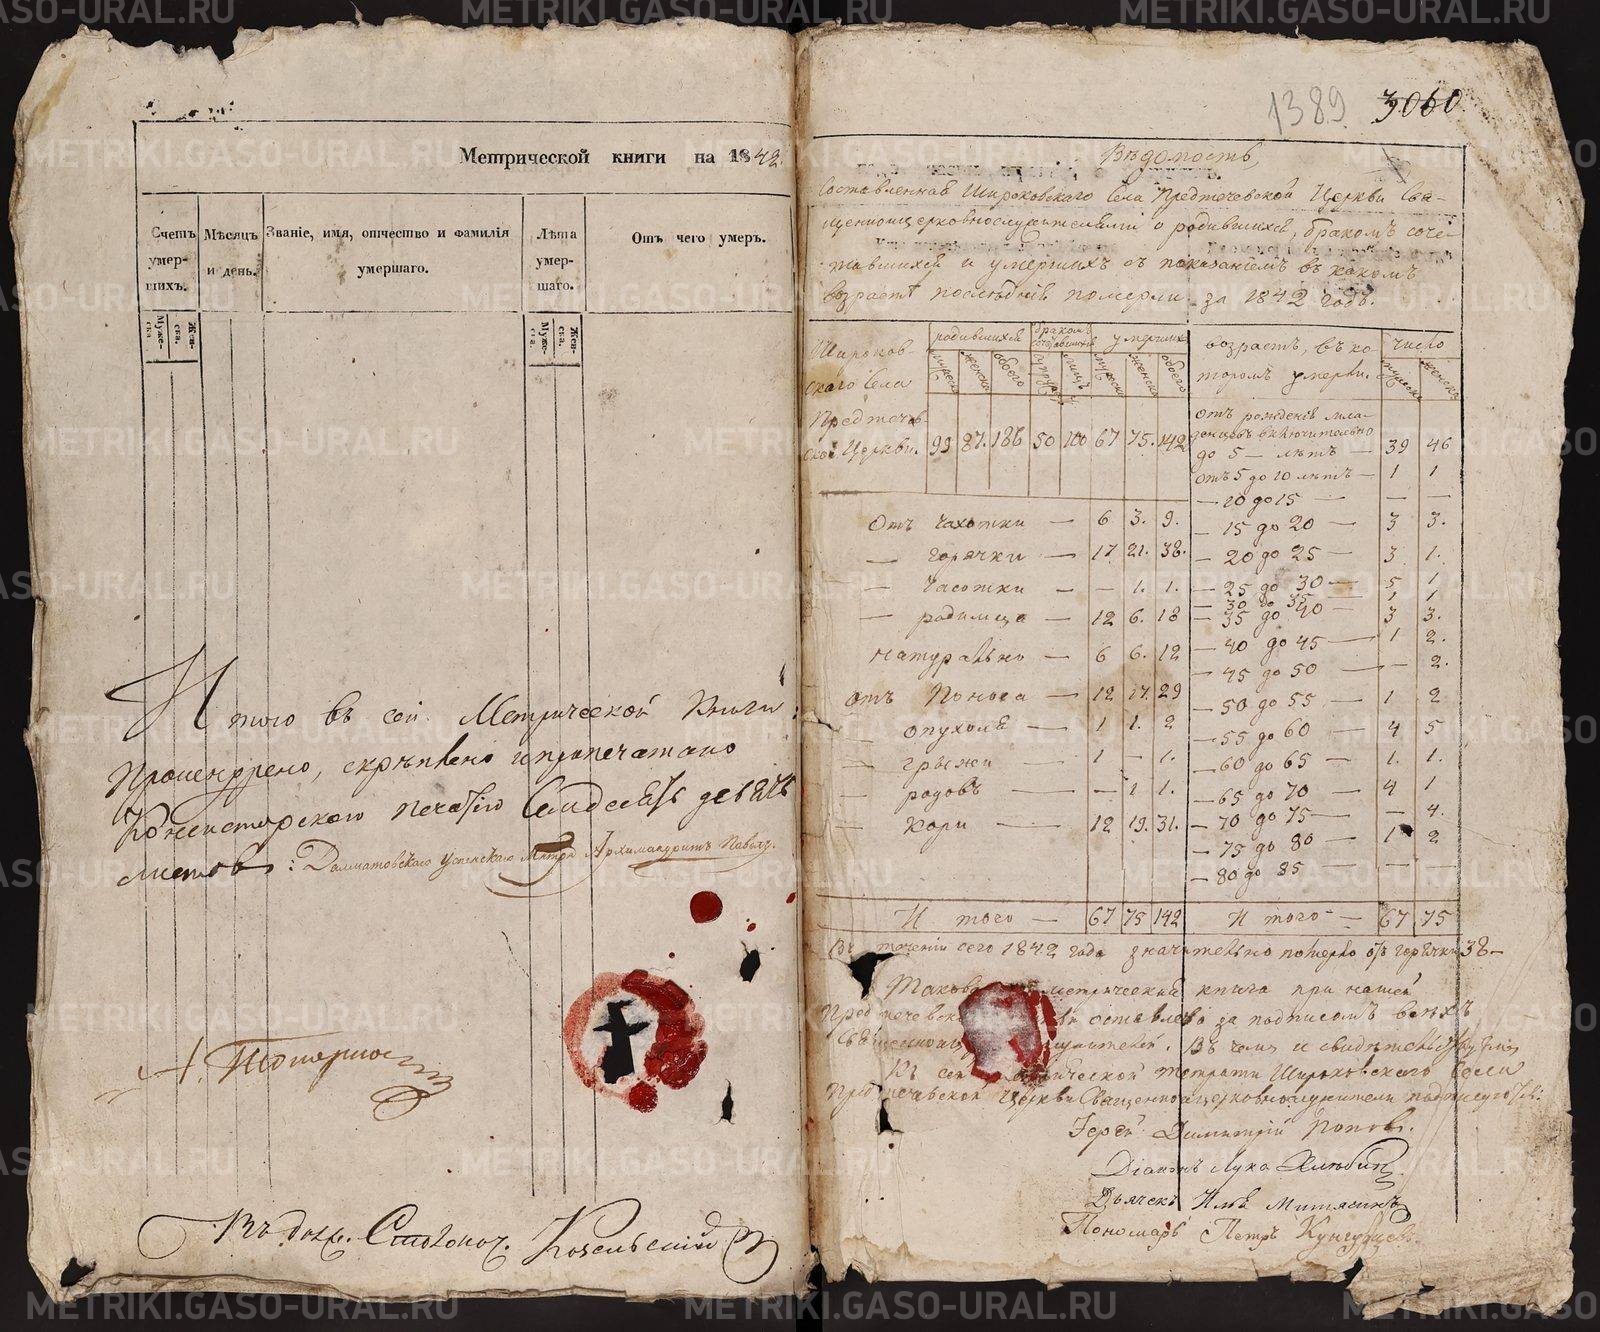 Метрической книги на 1842.
Счетъ умер- шихъ.
Мѣсяцъ и день.
Званіе, имя, отчество и фамилія умершаго.
Лѣта умер- шаго.
Отъ чего умеръ.
Муже- ска
Жен- ска.
Муже- ска.
Жен- ска.
Итого въ сей Метрической Книги
прошнурено, скрѣплено и припечатано
Консисторскою печатью Семдесятъ девять
листовъ: Далматовскаго Успенскаго Архимандритъ Павелъ.
Въ долж. Столонач.
1389 3060
Вѣдомость,
Составленная Широковскаго Села Предтечевской Церкви Свя-
щенноцерковнослужителями о родившихся, бракомъ соче-
тавшихся и умершихъ съ показаніемъ въ какомъ
возрастѣ послѣдніе померли за 1842 годъ.
Широков-
скаго Села
Предтечев-
ской Церкви.
родившихся
мужеска женска обоего
бракомъ сочетавшихся
супруж лицъ
умершихъ
мужеска женска обоего
99 87. 186 50 100 67 75. 142
возрастъ, въ ко-
торомъ умерли.
число
мужеска женска
отъ рожденія мла-
денцевъ включительно
до 5 — лѣтъ — 39 46
отъ 5 до 10 лѣтъ — 1 1
— 10 до 15 — — —
— 15 до 20 — 3 3.
— 20 до 25 — 3 1.
— 25 до 30 — 5 1
— 30 до 35 — 1 1
— 35 до 40 — 3 3.
— 40 до 45 — 1 2.
— 45 до 50 — — 2.
— 50 до 55 — 1 2
— 55 до 60 — 4 5
— 60 до 65 — 1. 1.
— 65 до 70 — 4 1
— 70 до 75 — — 4.
— 75 до 80 — 1 2
— 80 до 85 — — —
Отъ чахотки — 6 3. 9.
— горячки — 17 21. 38.
— часотки — — 1. 1.
— родимца — 12 6. 18
натурально — 6 6. 12
отъ Поноса — 12 17. 29
— опухоли — 1 1. 2
— грыжи — 1 — 1.
— родовъ — — 1 1.
— Кори — 12 19. 31.
И того — 67 75 142
И того — 67 75
Въ теченіи сего 1842 года значительно померло отъ горячки 38 —
Такова метрическая книга при нашей
Предтечевск оставлена за подписомъ всѣхъ
Въ чемъ и свидѣтельствуемъ
Къ сей тетрати Широковскаго села
Предтечевской Церкви Священноцерковнослужители подписуются:
Іерей Димитрій Поповъ.
Діаконъ Лука
Дьячекъ Илья
Пономарь Петръ Кунгурцевъ.
METRIKI.GASO-URAL.RU